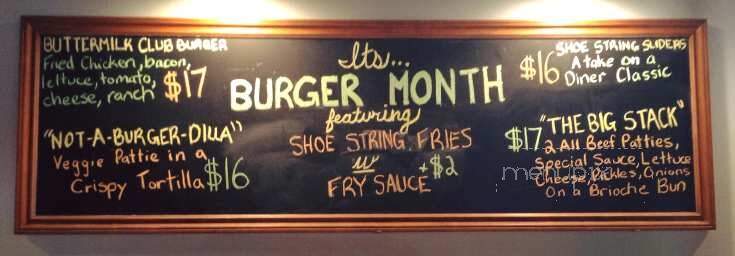 BUTTERMILK CLUB BURGER
Fried Chicken, bacon,
lettuce, tomato,
cheese, ranch $17
"NOT-A-BURGER-DILLA"
Veggie Pattie in a
Crispy Tortilla $16
Its...
BURGER MONTH
featuring
SHOE STRING FRIES
w/ +$2
FRY SAUCE
SHOE STRING SLIDERS
$16 A take on a
Diner Classic
$17 "THE BIG STACK"
2 All Beef Patties,
Special Sauce, Lettuce
Cheese, Pickles, Onions
On a Brioche Bun